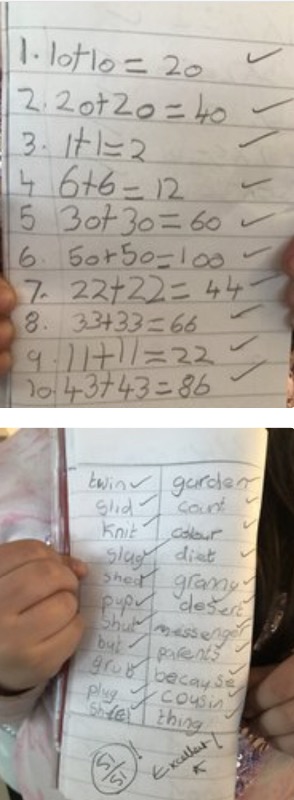 1. 10+10 = 20
2. 20+20 = 40
3. 1+1=2
4 6+6=12
5 30+30=60
6. 50+50=100
7. 22+22=44
8. 33+33=66
9. 11+11=22
10. 43+43=86
twin garden
slid count
knit colour
slug diet
shed granny
pup desert
shut messenger
but parents
grub because
plug cousin
thing
Excellent!